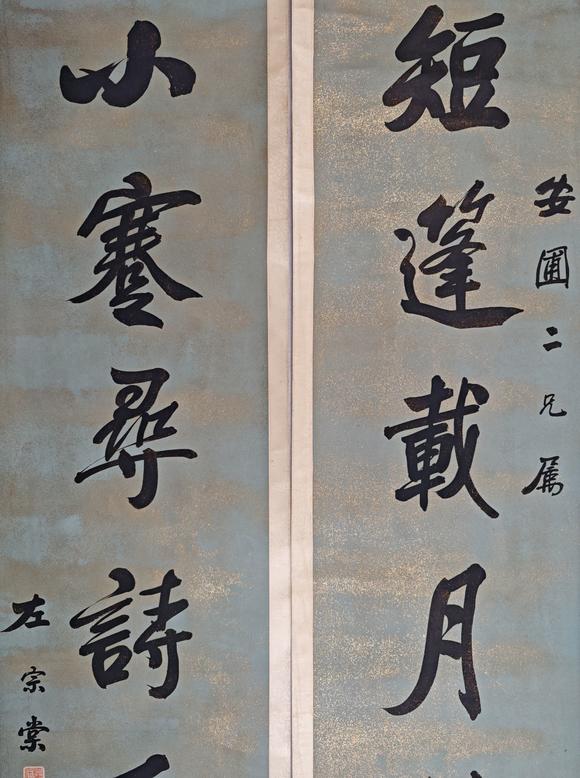 安圃二兄属
短篷載月
小蹇尋詩
左宗棠